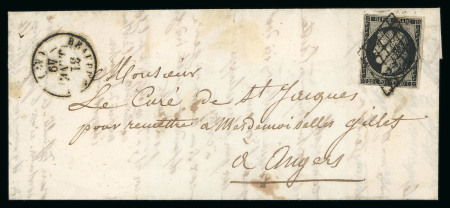 Monsieur
Le Curé de St Jacques
pour remettre à Mesdemoiselles Gillet
à Angers
REPUB. FRANC.
31
49